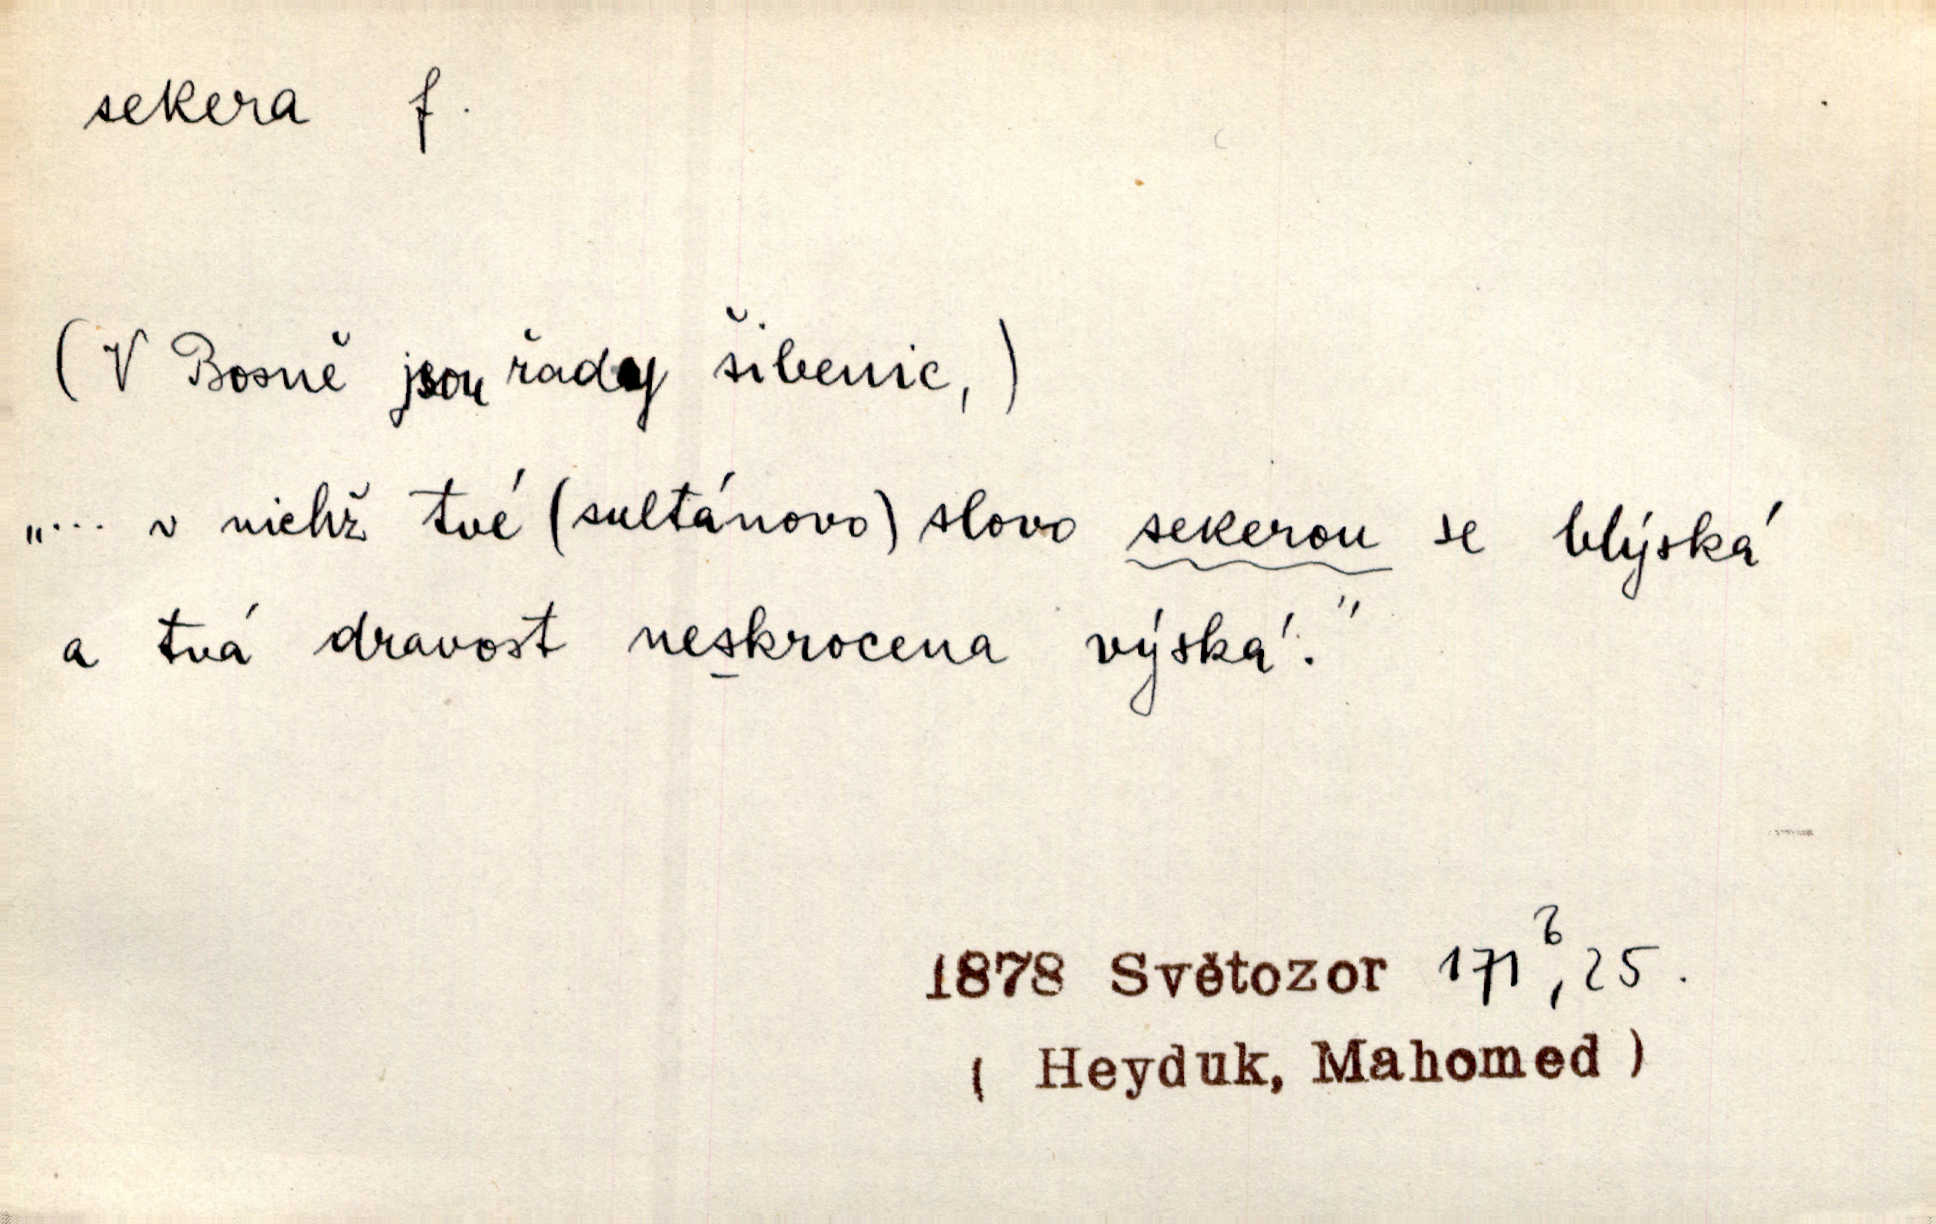 sekera f.
(V Bosně jsou řady šibenic,)
„... v nichž tvé (sultánovo) slovo sekerou se blýská
a tvá dravost neskrocena výská."
1878 Světozor 171b, 25.
( Heyduk, Mahomed )